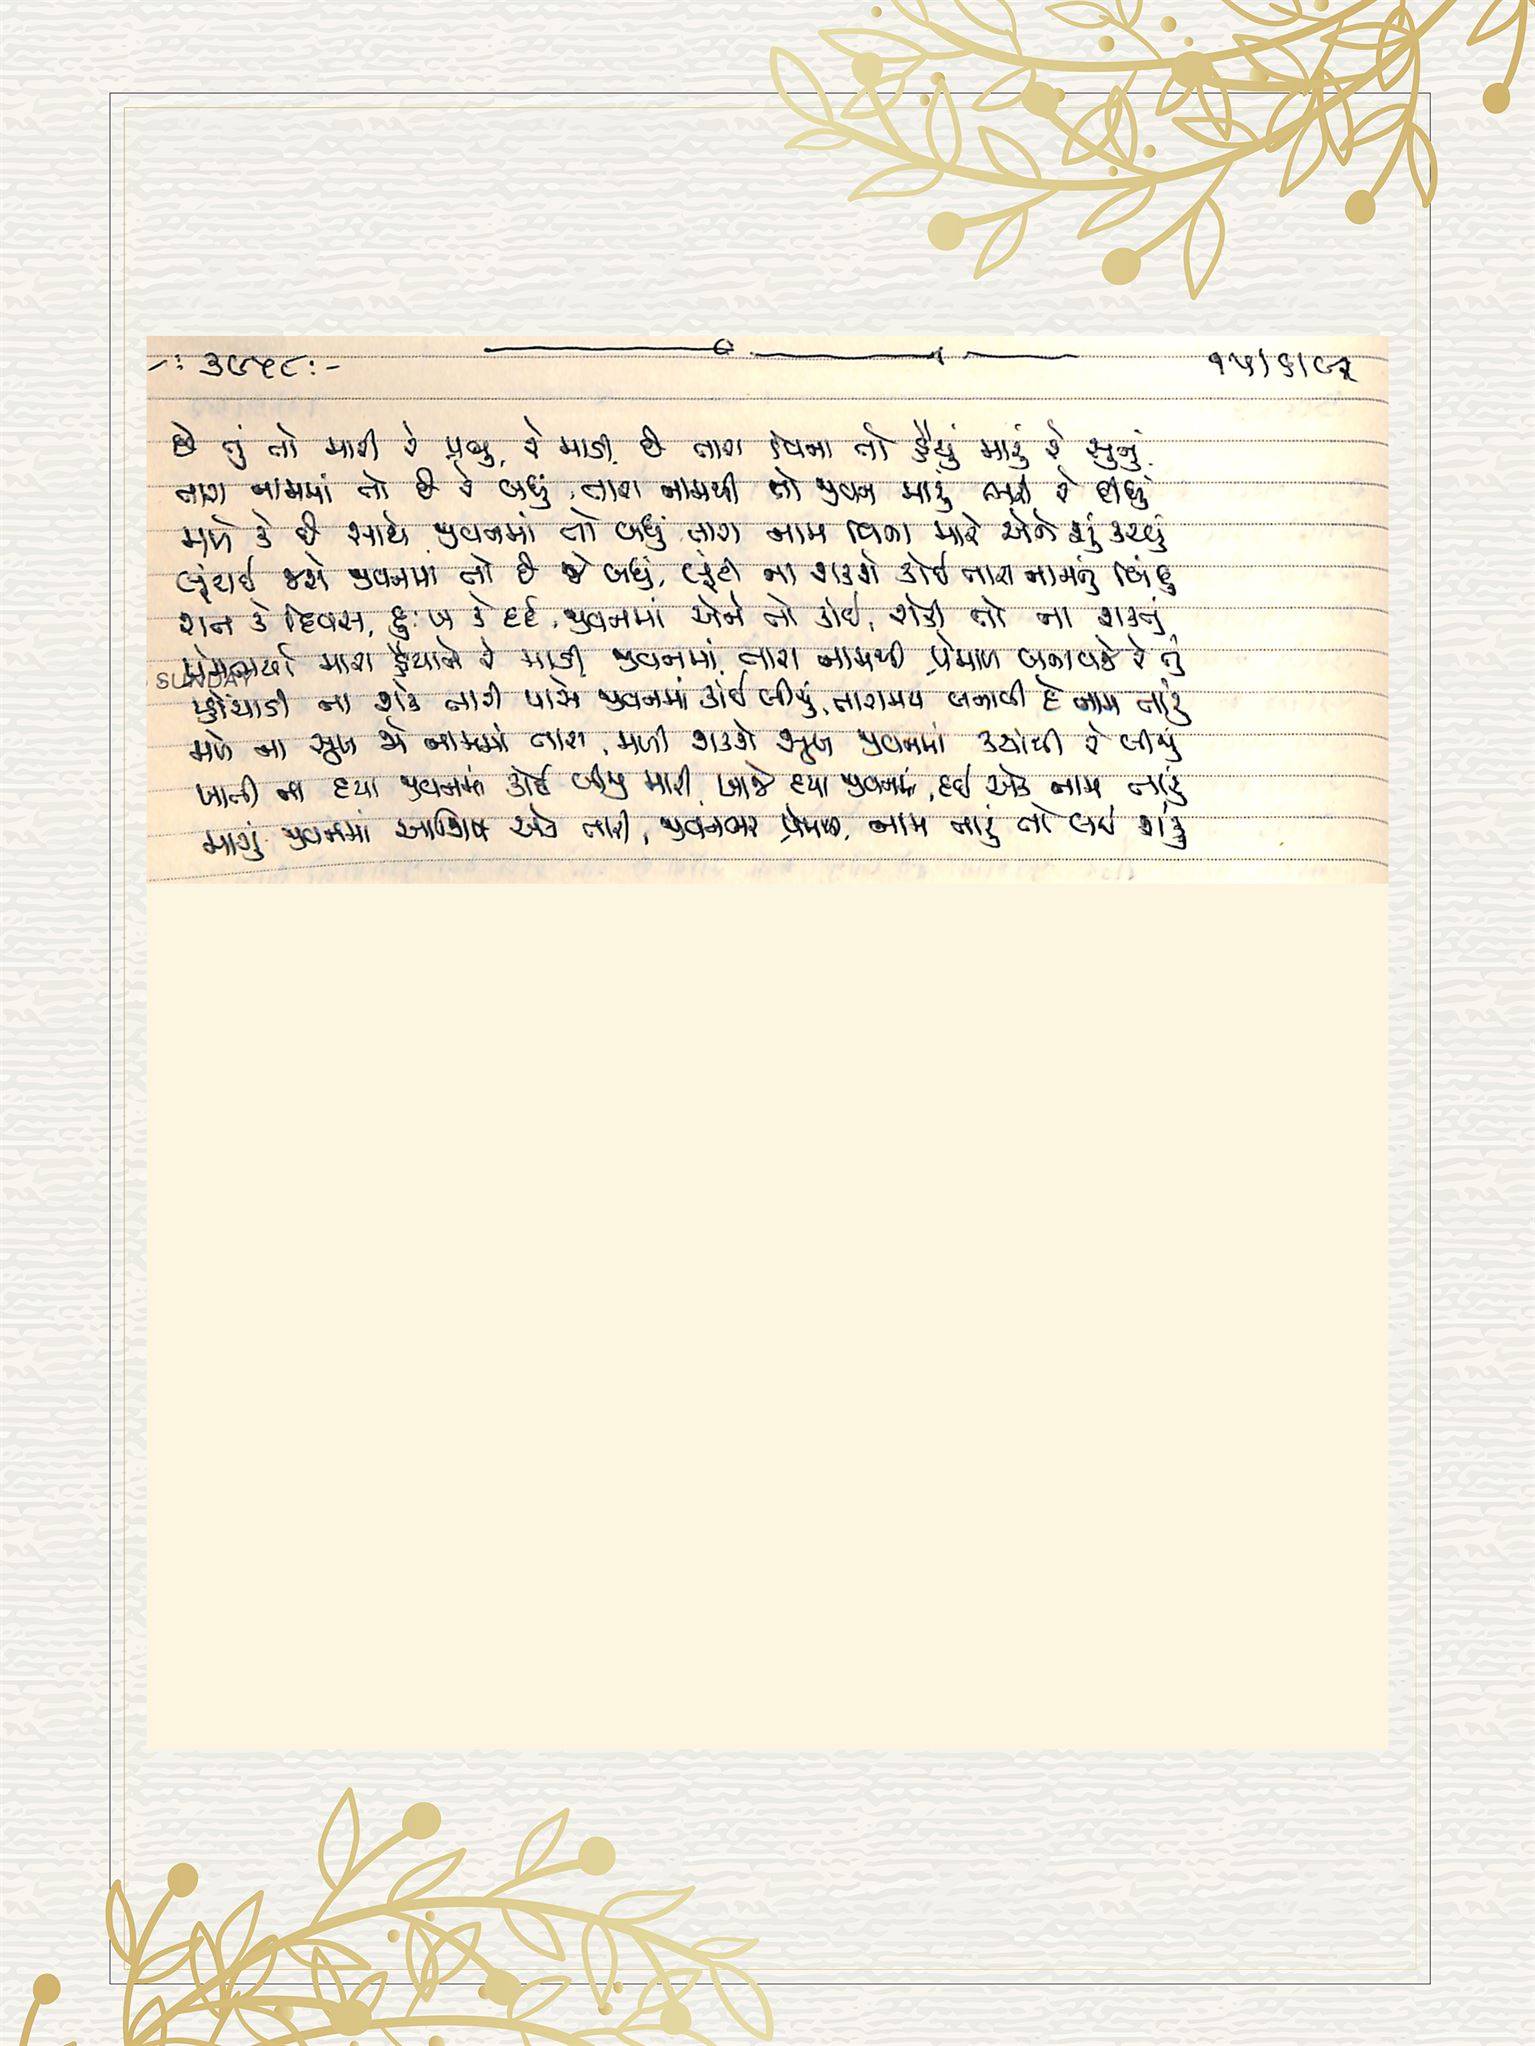 -: ૩૯૫૮:- ૧૫/૬/૯૨
છે તું તો મારી રે પ્રભુ, રે માડી, છે તારા વિના તો હૈયું મારું રે સુનું
તારા નામમાં તો છે રે બધું, તારા નામથી તો જીવન મારું ભરી રે દીધું
મળે કે છે સાથે જીવનમાં તો બધું તારા નામ વિના મારે એને શું કરવું
લૂંટાઈ જાશે જીવનમાં તો છે જે બધું, લૂંટી ના શકશે કોઈ તારા નામનું બિંદુ
રાત કે દિવસ, દુઃખ કે દર્દ, જીવનમાં એને તો કોઈ, રોકી તો ના શકતું
પ્રેમભર્યા મારા હૈયાને રે માડી જીવનમાં, તારા નામથી પ્રેમાળ બનાવજે રે તું
SUNDAY
પ્હોંચાડી ના શકે તારી પાસે જીવનમાં કોઈ બીજું, તારામય બનાવી દે નામ તારું
મળે ના સુખ જે નામમાં તારા, મળી શકશે સુખ જીવનમાં ક્યાંથી રે બીજું
ખાતી ના દયા જીવનમાં કોઈ બીજી મારી, ખાજે દયા જીવનમાં, દઈ એક નામ તારું
માગું જીવનમાં આશિષ એક તારી, જીવનભર પ્રેમથી, નામ તારું તો લઈ શકું